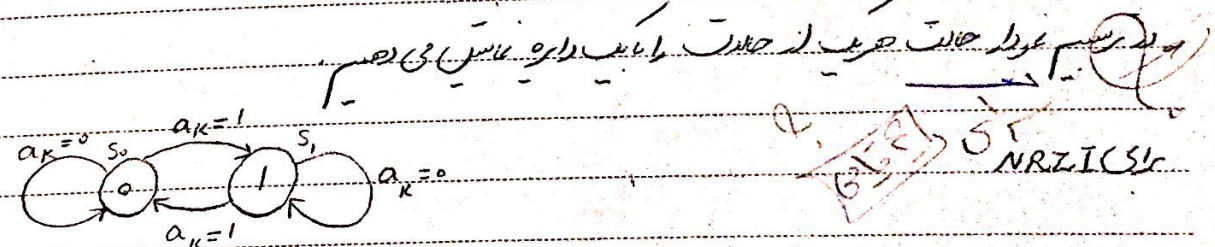 در رسیم نمودار حالت هریک از حالات را با یک دایره نمایش می دهیم.
برای NRZI
aₖ=0 S₀ aₖ=1 S₁ aₖ=0
0 1
aₖ=1